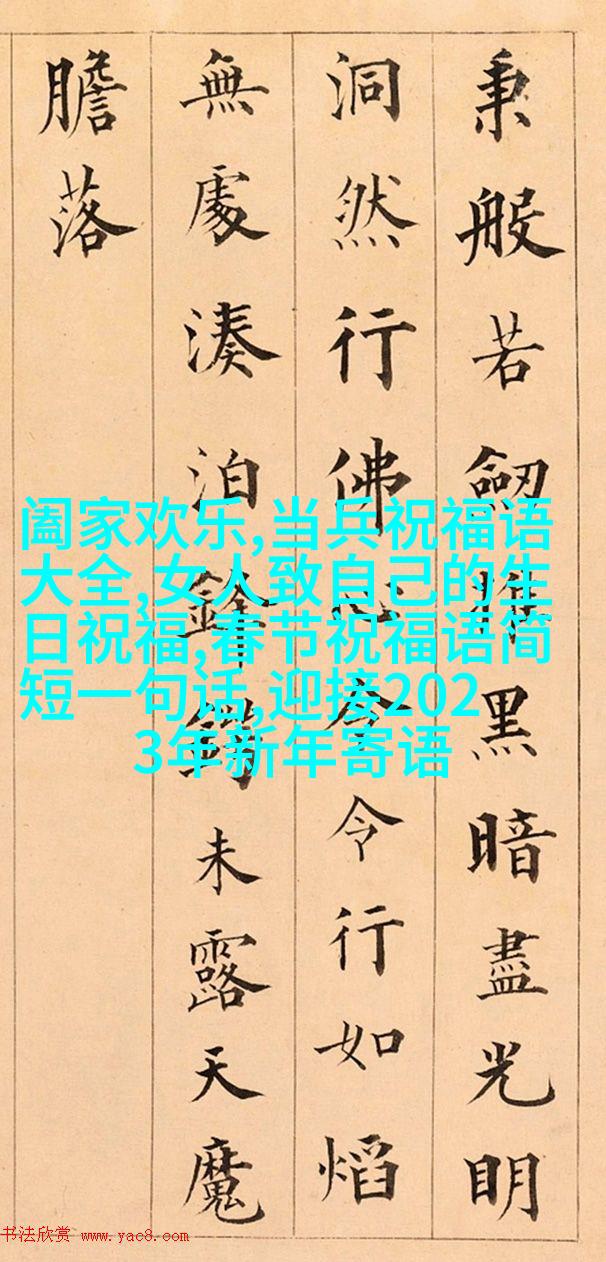 秉般若劒黑暗盡光明
洞然行佛心令令行如熖
無處湊泊鋒鍔未露天魔
膽落
阖家欢乐,当兵祝福语
大全,女人致自己的生
日祝福,春节祝福语简
短一句话,迎接202
3年新年寄语
书法欣赏 www.yac8.com